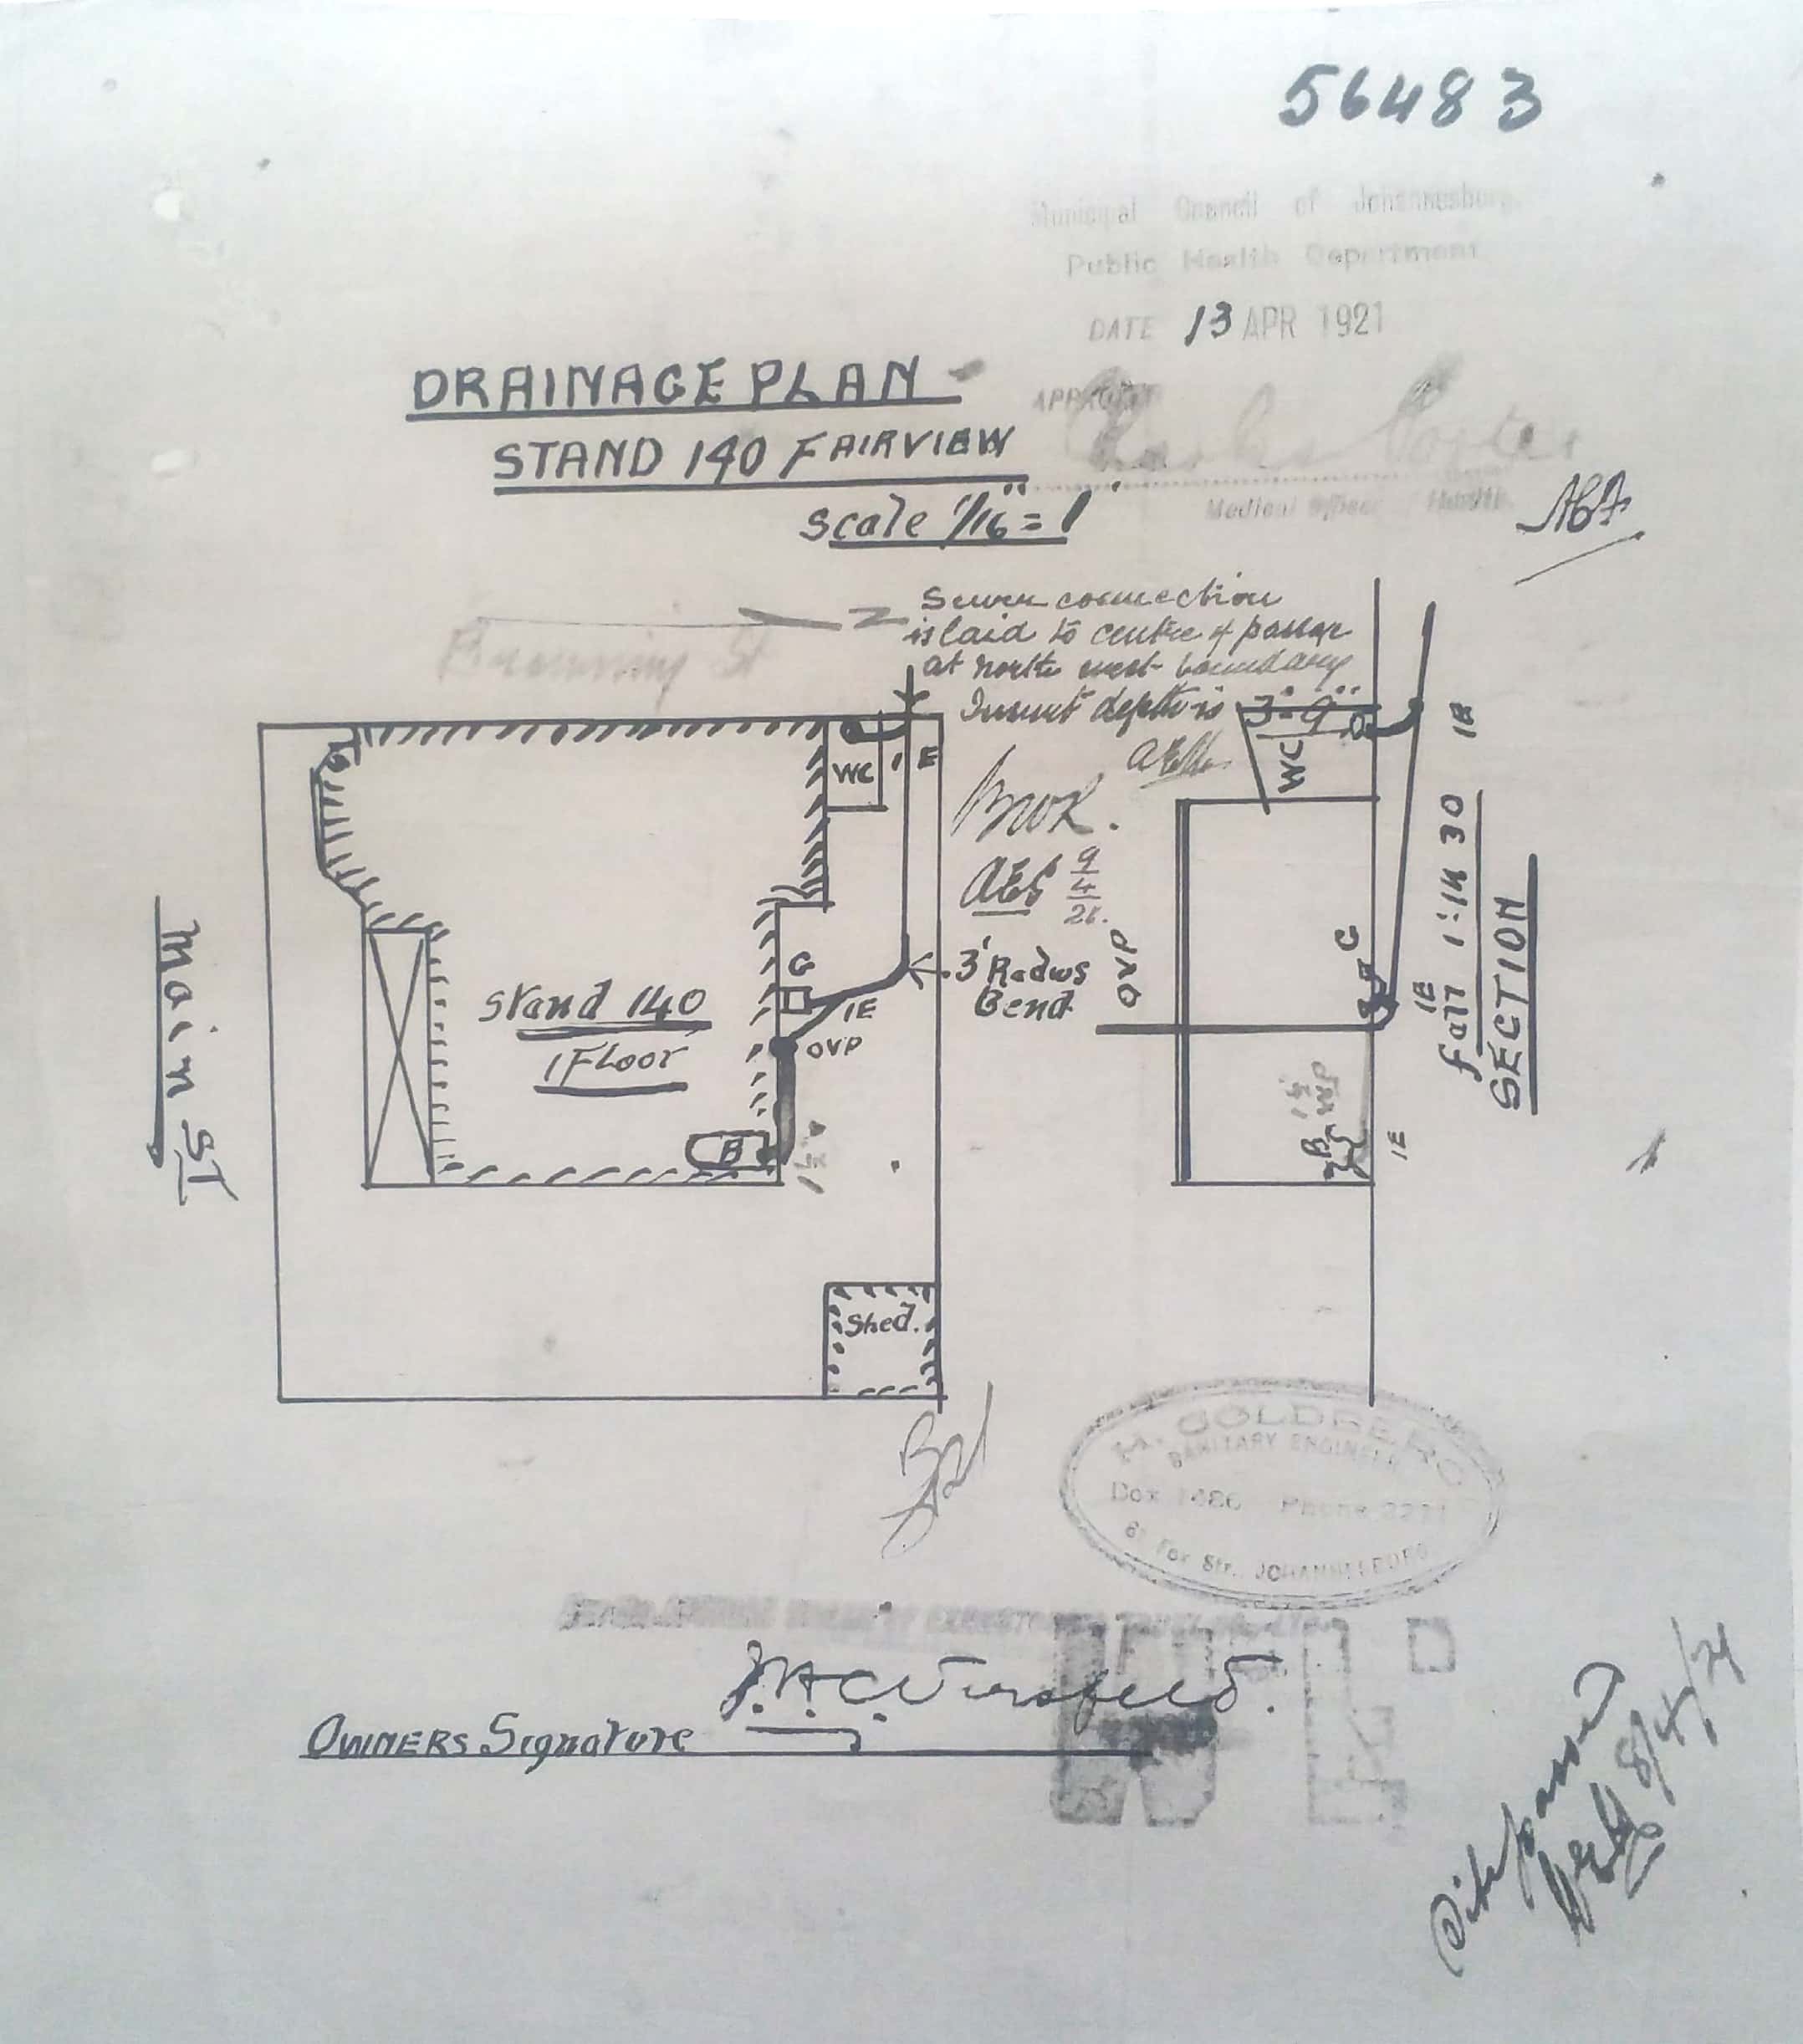 56483
Municipal Council of Johannesburg.
Public Health Department
DATE 13 APR 1921
DRAINAGE PLAN
STAND 140 FAIRVIEW
Scale 1/16" = 1'
Medical Officer Health.
Sewer connection
is laid to centre of passage
at north west boundary
Invert depth is 3'-9"
Browning St
WC
IE
WC
IE
AES 9/4/21.
Main ST
G
3' Radius
Bend
Stand 140
1 Floor
IE
OVP
B
OVP
G
IE
Fall 1:IN 30
SECTION
IE
Shed.
H. GOLDBERG
SANITARY ENGINEER
Box Phone
Fox Str. JOHANNESBURG
OWNERS Signature
8/4/21